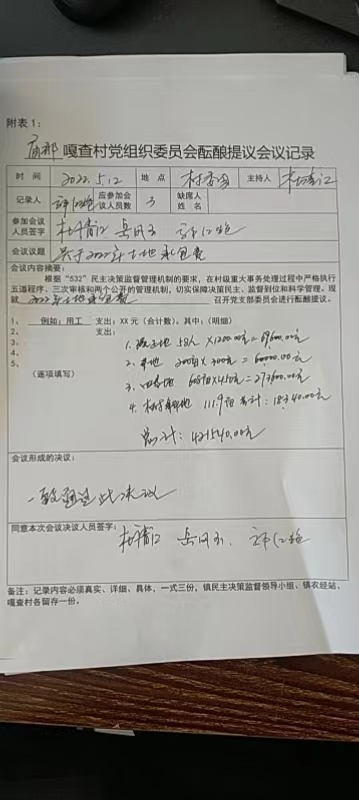 附表1：
嘎查村党组织委员会酝酿提议会议记录
时 间 2022.5.12 地 点 村委会 主持人
记录人 应参加会议人员数 3 缺席人姓名
参加会议人员签字
会议议题 关于2022年土地承包费
会议内容摘要：
根据“532”民主决策监督管理机制的要求，在村级重大事务处理过程中严格执行
五道程序、三次审核和两个公开的管理机制，切实保障决策民主、监督到位和科学管理。现
就 2022年土地承包费 召开党支部委员会进行酝酿提议。
1、 例如：用工 支出：XX元（合计数）。其中：（明细）
2、 支出：
3、
4、
5、
（逐项填写）
1. 地 58人×1200.00元=69600.00元
2. 地 200亩×300元=60000.00元
3. 地 608亩×450元=273600.00元
4. 地 111.9亩 合计：18340.00元
总计：421540.00元
会议形成的决议：
一致通过此决议
同意本次会议决议人员签字：
备注：记录内容必须真实、详细、具体，一式三份，镇民主决策监督领导小组、镇农经站、
嘎查村各留存一份。